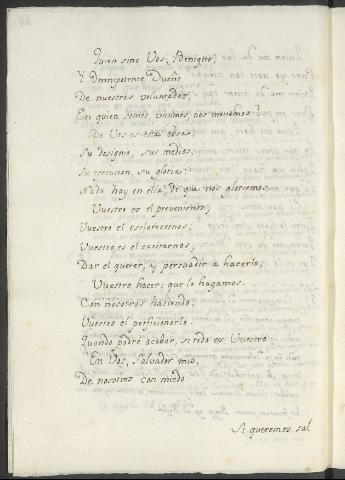 Quien sino Vos, Benigno,
Y Omnipotente Dueño
De nuestras voluntades,
En quien somos, vivimos, nos movemos?
De Vos es esta obra,
Su designio, sus medios,
Su execucion, su gloria;
Nada hay en ella, de que nos gloriemos.
Vuestro es el prevenirnos,
Vuestro el esclarecernos,
Vuestro es el excitarnos,
Dar el querer, y persuadir a hacerlo;
Vuestro hacer, que lo hagamos
Con nosotros haciendo;
Vuestro el perficionarlo:
Quando podrè acabar, si todo es Vuestro
En Vos, Salvador mio,
De nosotros con miedo
Si queremos sal